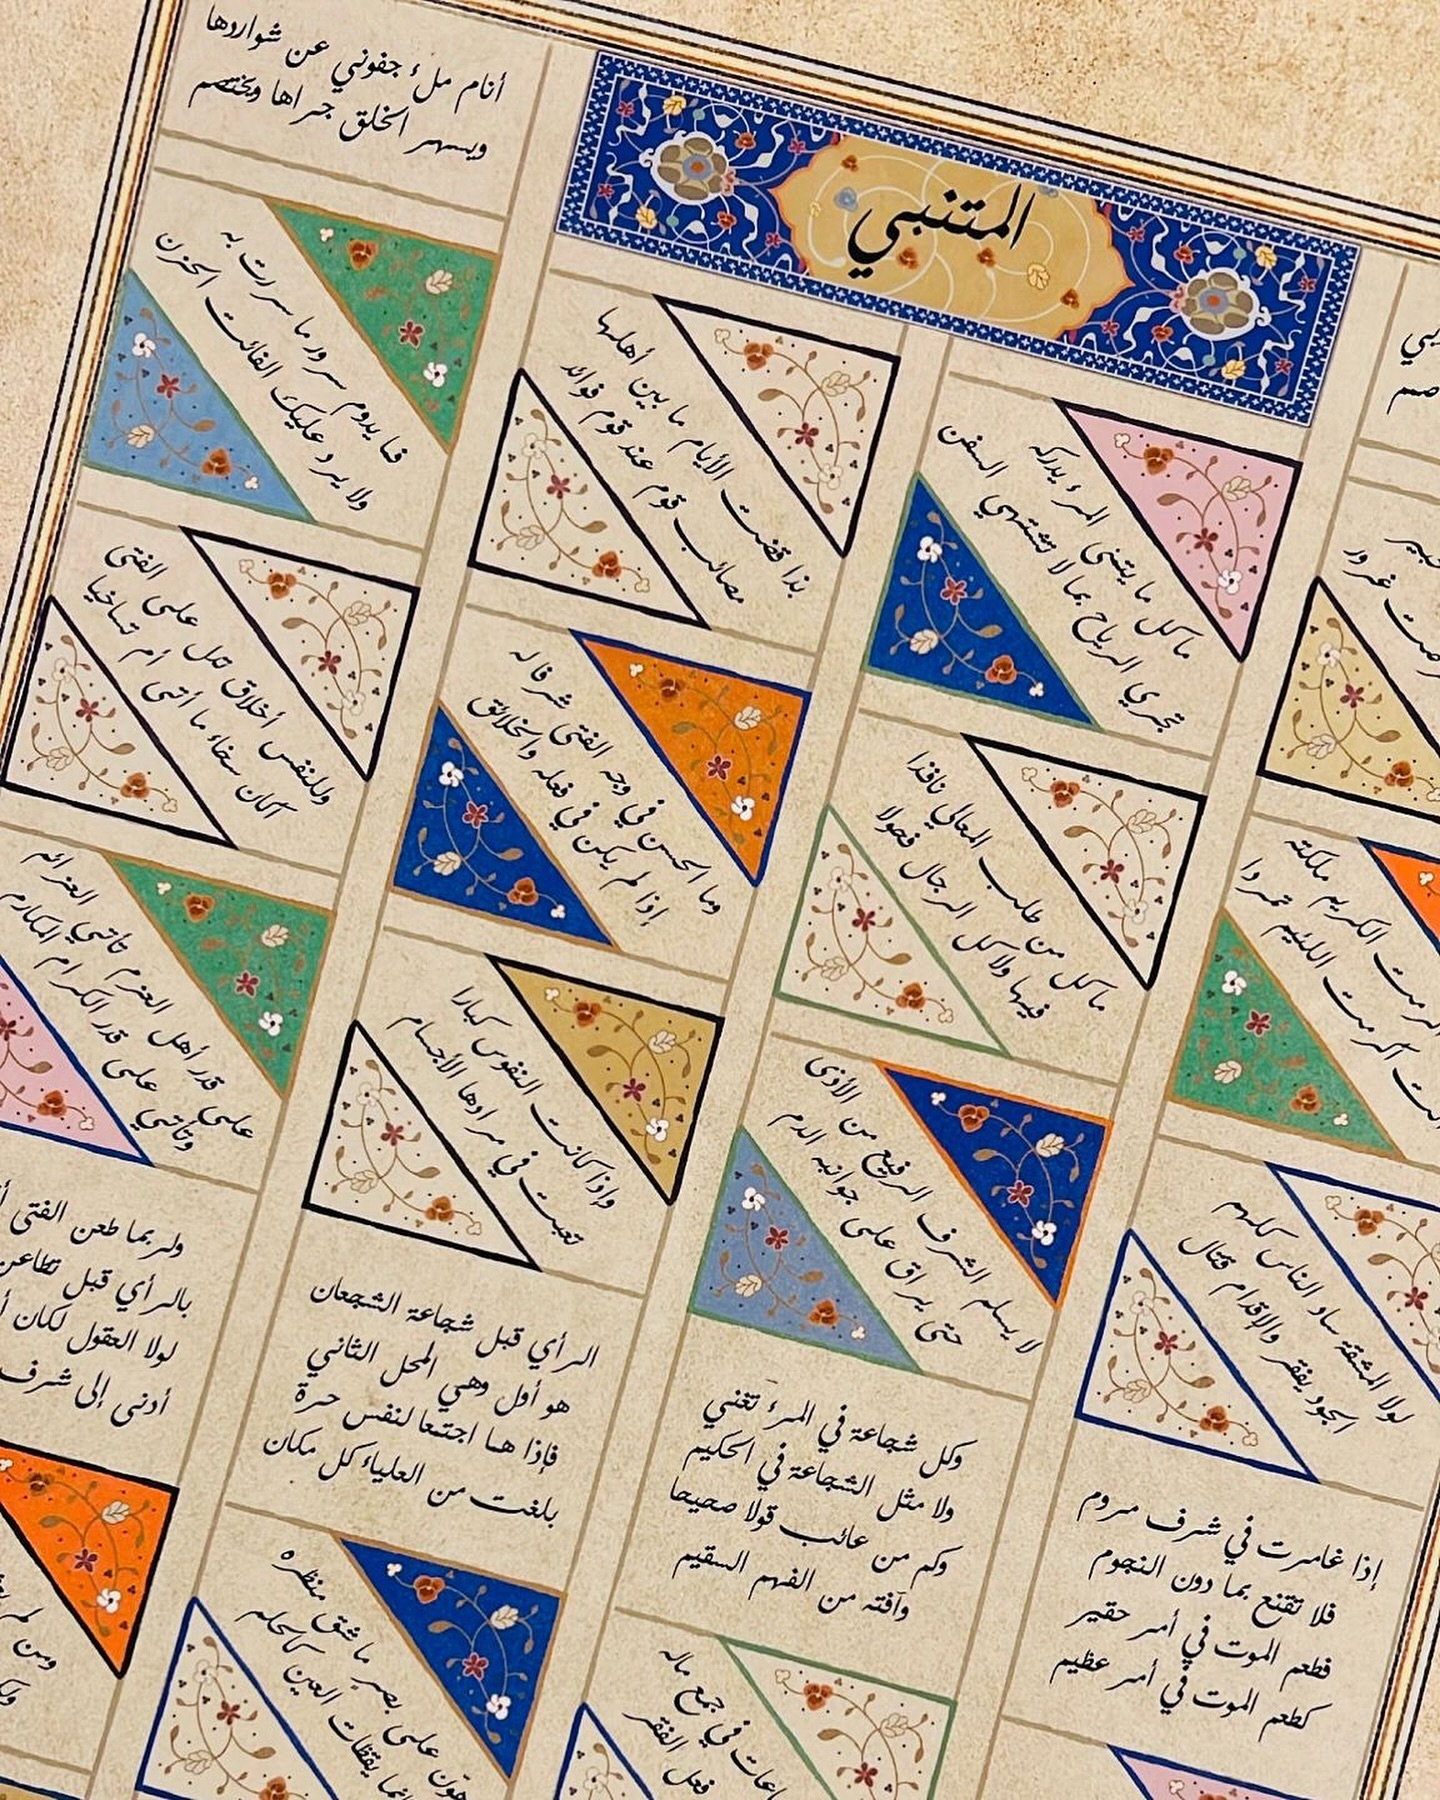 المتنبي
أنام ملء جفوني عن شواردها
ويسهر الخلق جراها ويختصم
فما يدوم سرور ما سررت به
ولا يرد عليك الفائت الحزن
بذا قضت الأيام ما بين أهلها
مصائب قوم عند قوم فوائد
ما كل ما يتمنى المرء يدركه
تجري الرياح بما لا تشتهي السفن
وللنفس أخلاق تدل على الفتى
أكان سخاء ما أتى أم تساخيا
وما الحسن في وجه الفتى شرفا له
إذا لم يكن في فعله والخلائق
ما كل من طلب المعالي نافذا
فيها ولا كل الرجال فحولا
على قدر أهل العزم تأتي العزائم
وتأتي على قدر الكرام المكارم
وإذا كانت النفوس كبارا
تعبت في مرادها الأجسام
لا يسلم الشرف الرفيع من الأذى
حتى يراق على جوانبه الدم
أكرمت الكريم ملكته
أكرمت اللئيم تمردا
لولا المشقة ساد الناس كلهم
الجود يفقر والإقدام قتال
ولربما طعن الفتى
بالرأي قبل تطاعن
لولا العقول لكان
أدنى إلى شرف
الرأي قبل شجاعة الشجعان
هو أول وهي المحل الثاني
فإذا هما اجتمعا لنفس حرة
بلغت من العلياء كل مكان
وكل شجاعة في المرء تغني
ولا مثل الشجاعة في الحكيم
وكم من عائب قولا صحيحا
وآفته من الفهم السقيم
إذا غامرت في شرف مروم
فلا تقنع بما دون النجوم
فطعم الموت في أمر حقير
كطعم الموت في أمر عظيم
هون على بصر ما شق منظره
يقظات العين كالحلم
في جمع ماله
فعل الفقر